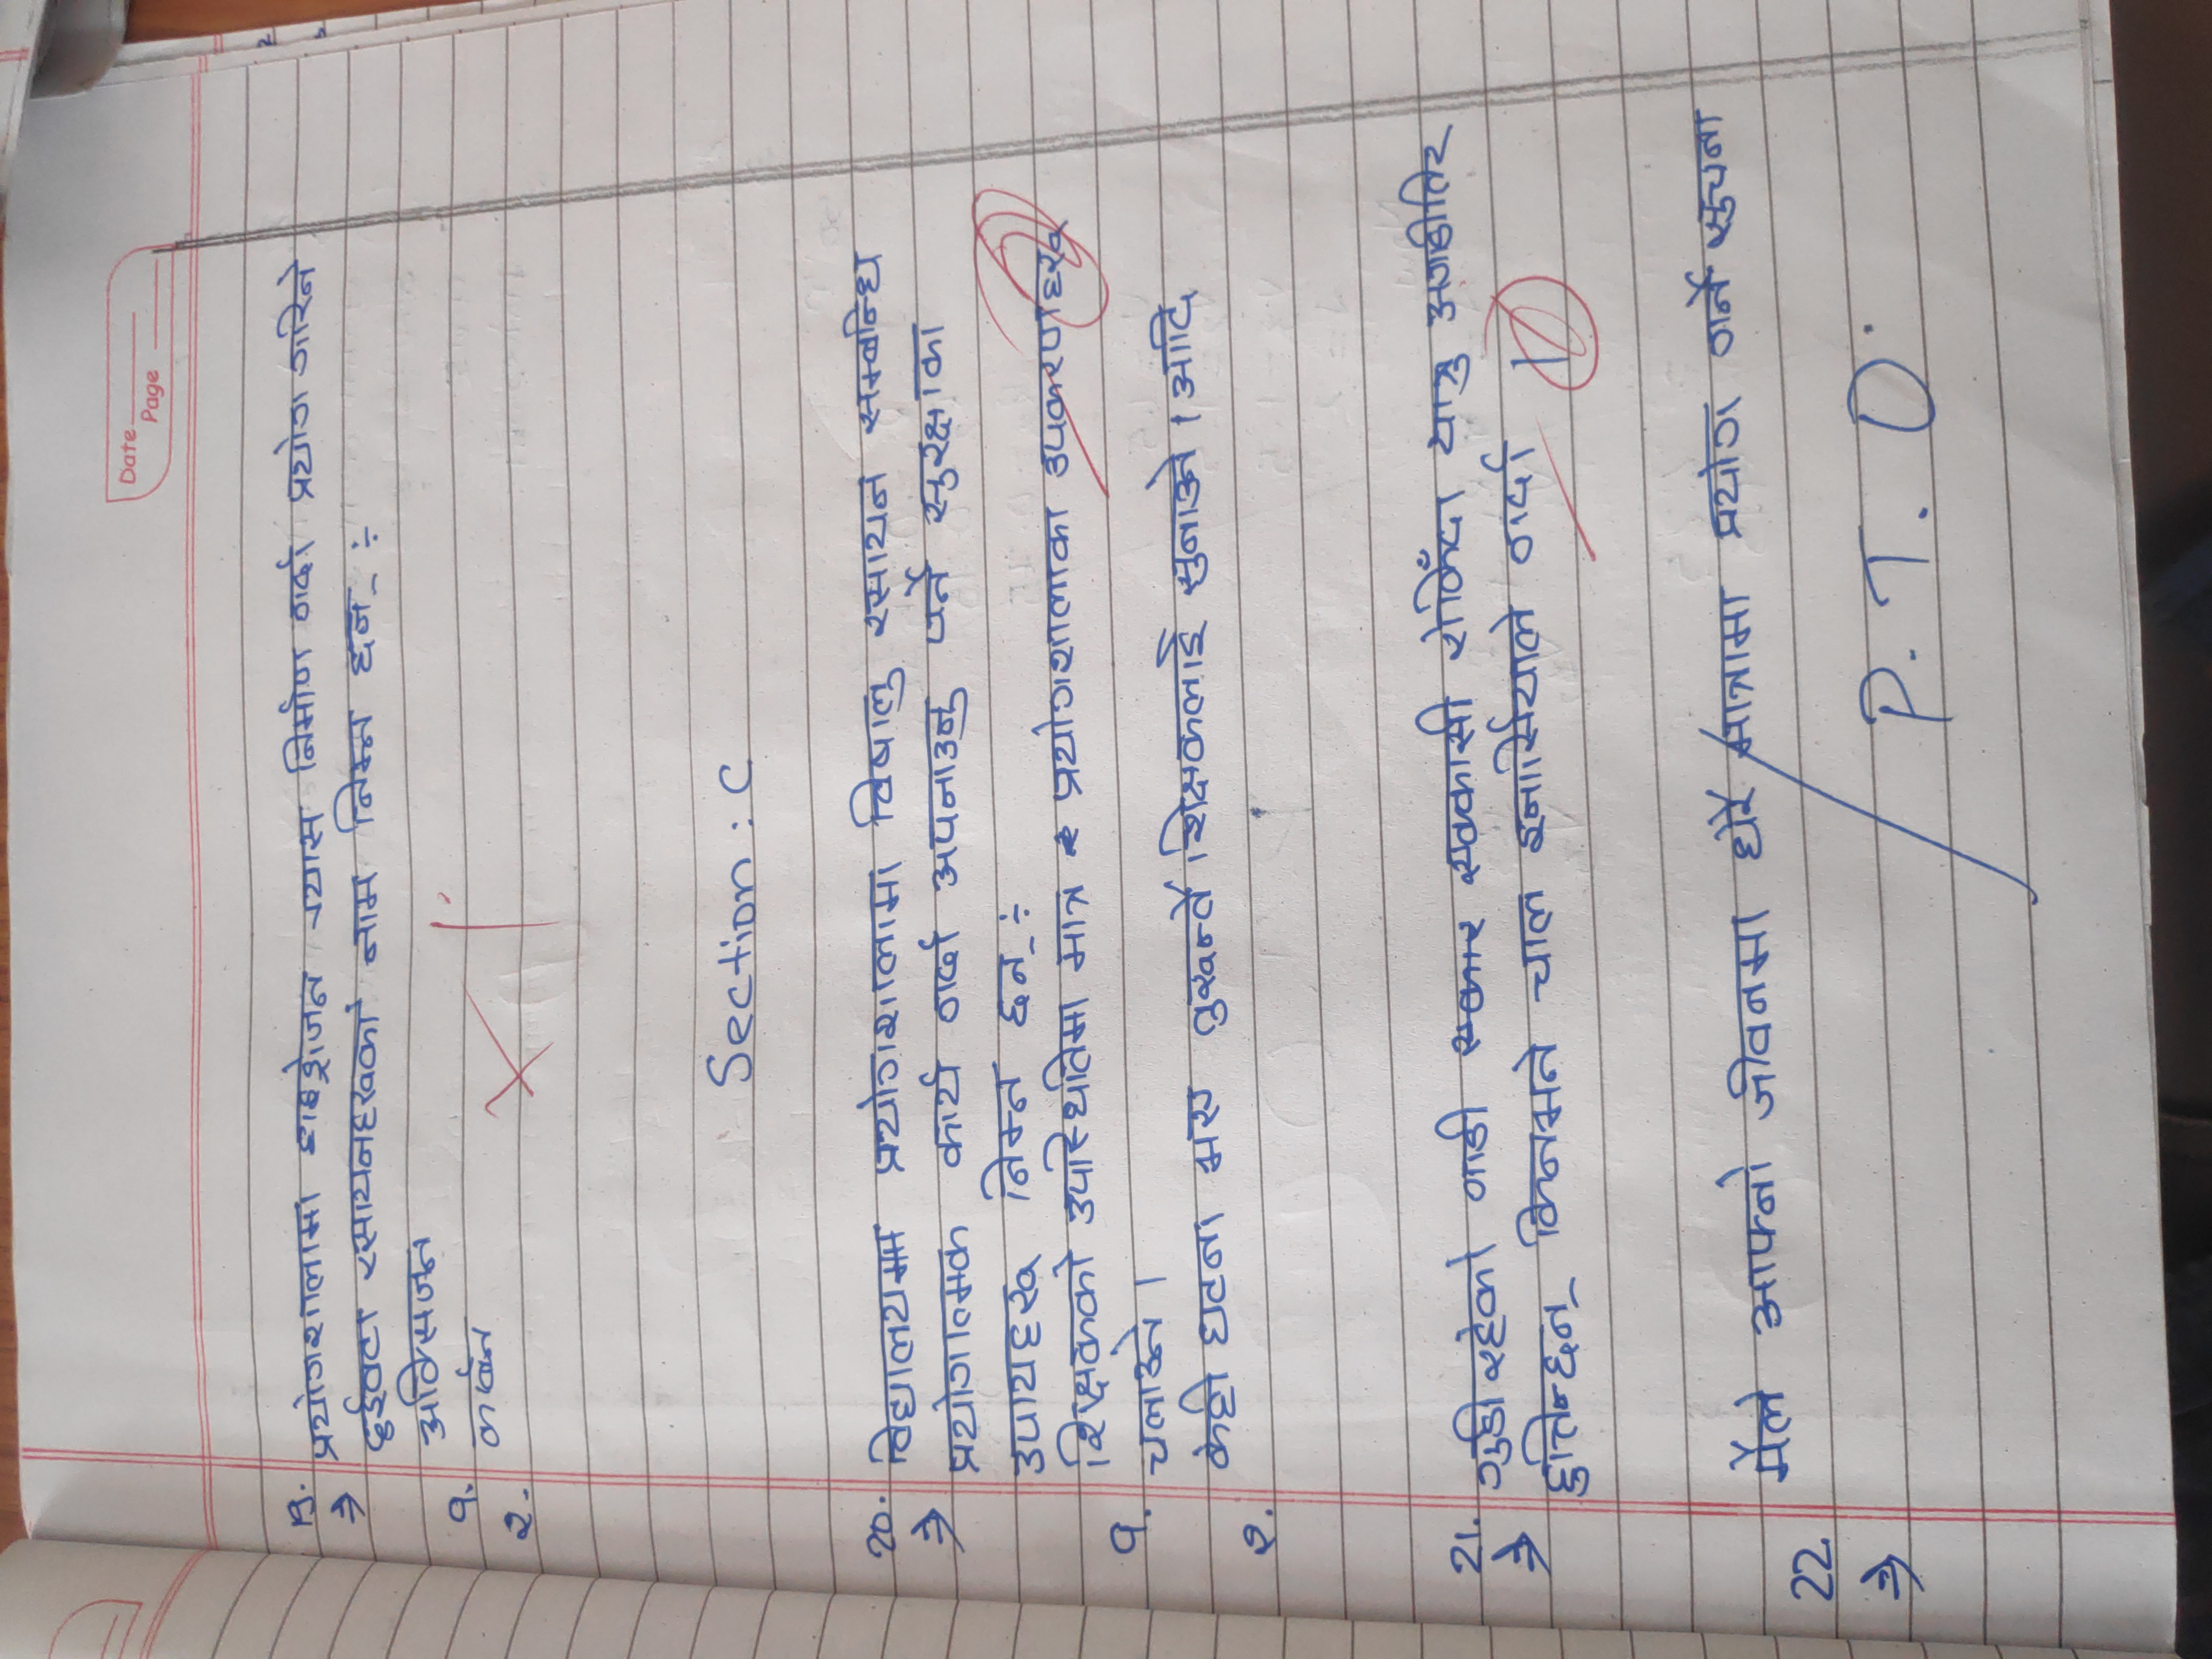 Date
Page
19. प्रयोगशालामा हाइड्रोजन ग्यास निर्माण गर्दा प्रयोग गरिने
⇒ दुईवटा रसायनहरूको नाम निम्न छन् ÷
१. अक्सिजन
२. कार्बन
Section : C
20. विद्यालयमा प्रयोगशालामा विषालु रसायन सम्बन्धि
⇒ प्रयोगात्मक कार्य गर्दा अपनाउनु पर्ने सुरक्षाका
उपायहरू निम्न छन् ÷
१. शिक्षकको उपस्थितिमा मात्र प्रयोगशालाका उपकरणहरू
चलाउने ।
२. केही घटना भए तुरून्तै शिक्षकलाई सुनाउने । आदि
21. गुडीरहेको गाडी एक्कासी रोकिँदा यात्रु अगाडीतिर
⇒ हुत्तिन्छन् किनभने चाल इनार्सियाले गर्दा
22. मैले आफ्नो जीवनमा धेरै मात्रामा प्रयोग गर्ने सुचना
⇒
P. T. O.